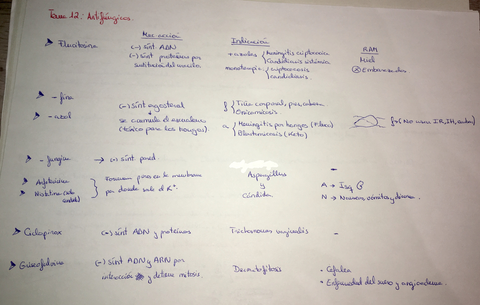 Tema 12. Antifúngicos.
Mecanismo Indicación RAM
Flucitosina (-) sínt ADN + azoles Meningitis criptococica Miel
(-) sínt proteínas por Candidiasis sistémica Embarazadas
sustitución del uracilo monoterapia criptococosis
candidiasis
- fina (-) sínt ergosterol Tiña corporal, pies, cabeza
Onicomicosis
- azol se acumula el escualeno Meningitis por hongos (Fluco) (No usar IR, IH, emb)
(tóxico para los hongos) Blastomicosis (Keto)
- fungina → (-) sínt. pared Aspergillus -
Anfotericina Forman poros en la membrana y A → Isq
Nistatina por donde sale el K+. Cándida N → Nauseas vómitos y diarrea.
Ciclopirox (-) sínt ADN y proteínas Trichomonas vaginalis -
Griseofulvina (-) sínt ADN y ARN por Dermatofitosis - Cefalea
interacción y detiene mitosis. - Enfermedad del suero y angioedema.